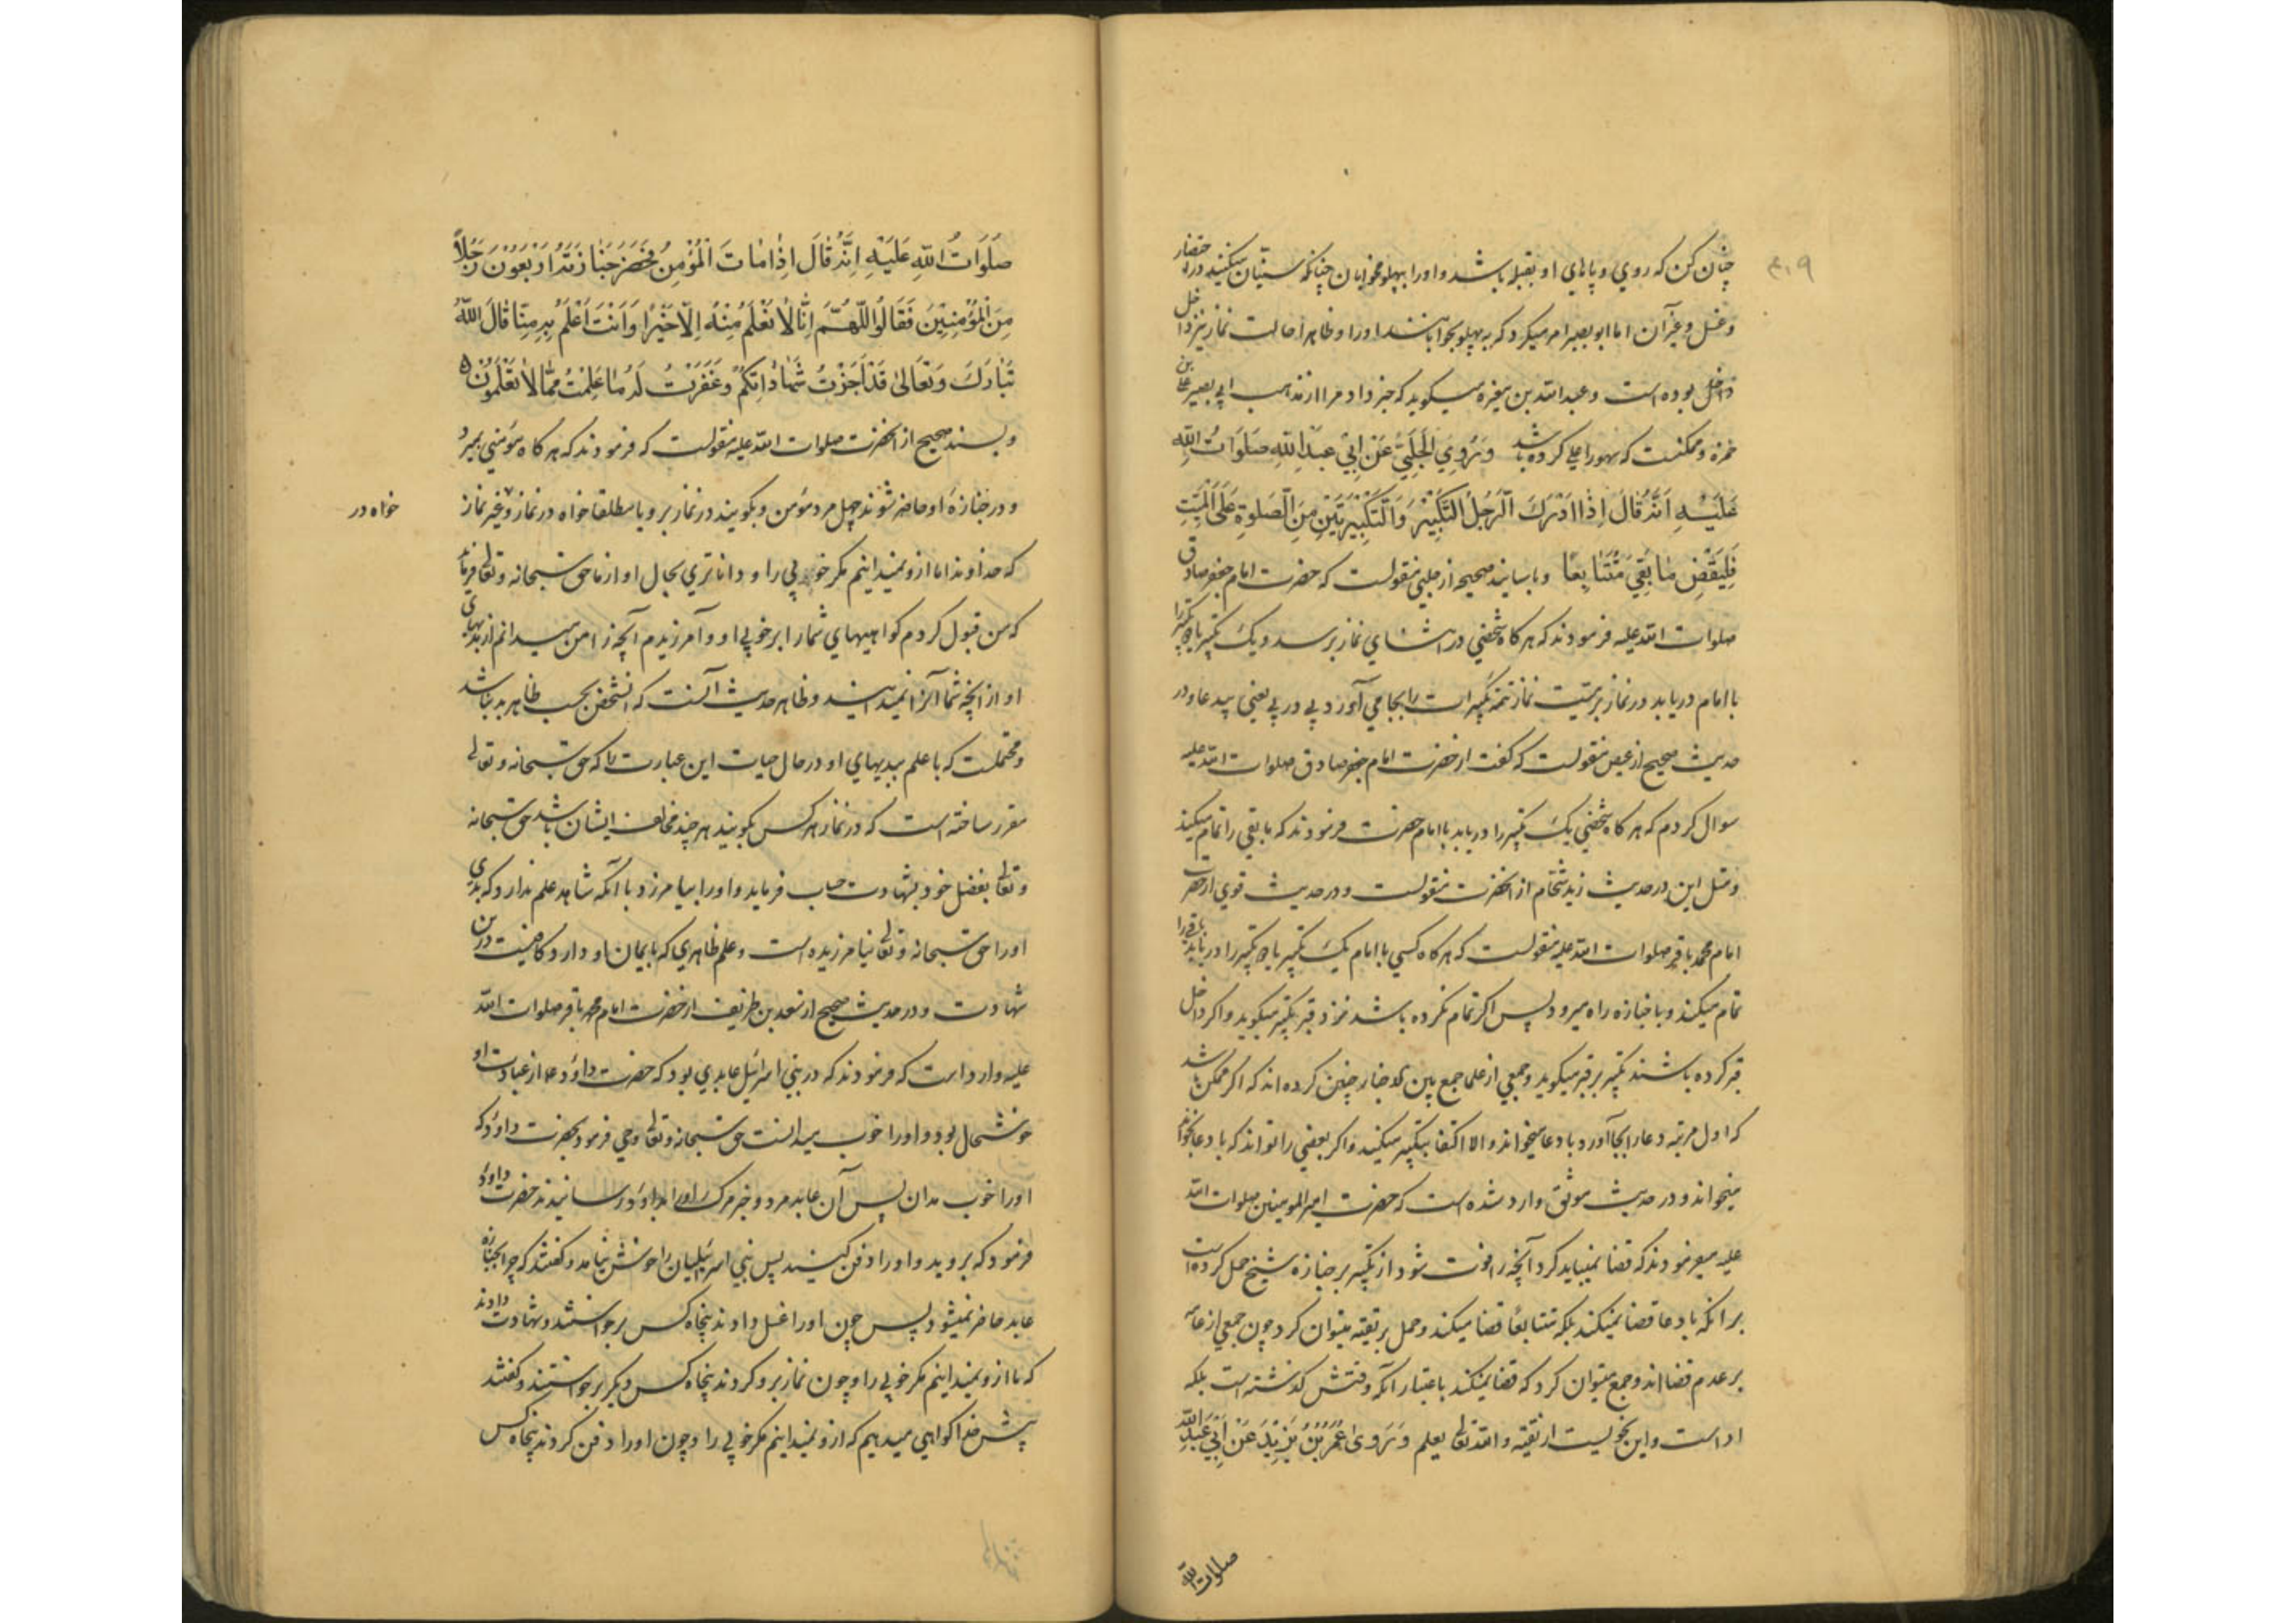 ۴۱۹
چنان کن که روی و پاهای او بقبله باشد و او را بپهلو مخوابان چنانکه سنیان میکنند در احتضار
و غسل و غیر آن اما ابو بصیر امر میکرد که به پهلو بخوابانند او را و ظاهرا حالت نماز نیز داخل
داخل بوده است و عبد الله بن مغیره میگوید که خبر داد مرا از مذهب ابی بصیر علی بن
حمزه و ممکنست که سهو را علی کرده باشد وَرَوَی الْحَلَبِیُّ عَنْ اَبِی عَبْدِ اللّٰهِ صَلَوَاتُ اللّٰهِ
عَلَیْهِ اَنَّهُ قَالَ اِذَا اَدْرَكَ الرَّجُلُ التَّكْبِیرَ وَالتَّكْبِیرَتَیْنِ مِنَ الصَّلٰوةِ عَلَی الْمَیِّتِ
فَلْیَقْضِ مَا بَقِیَ مُتَتَابِعًا و باسانید صحیحه از حلبی منقولست که حضرت امام جعفر صادق
صلوات الله علیه فرمودند که هر کاه شخصی در اثنای نماز برسد و یک تکبیر یا دو تکبیر را
با امام دریابد در نماز بر میت نماز تتمه تکبیرات را بجا می آورد پی در پی یعنی بی دعا و در
حدیث صحیح از عیص منقولست که کفت از حضرت امام جعفر صادق صلوات الله علیه
سوال کردم که هر کاه شخصی یک تکبیر را دریابد با امام حضرت فرمودند که ما بقی را تمام میکند
و مثل این در حدیث زید شحام از آنحضرت منقولست و در حدیث قوی از حضرت
امام محمد باقر صلوات الله علیه منقولست که هر کاه کسی با امام یک تکبیر یا دو تکبیر را دریابد باقی را
تمام میکند و با جنازه راه میرود پس اکر تمام نکرده باشد نزد قبر تکبیر میکوید و اکر داخل
قبر کرده باشند تکبیر بر قبر میکوید و جمعی از علما جمع بین الاخبار چنین کرده اند که اکر ممکن باشد
که اول مرتبه دعا را بجا آورد با دعا میخواند و الا اکتفا بتکبیر میکنند و اکر بعضی را تواند که با دعا بخواند
میخواند و در حدیث موثق وارد شده است که حضرت امیر المومنین صلوات الله
علیه میفرمودند که قضا نمیباید کرد آنچه را فوت شود از تکبیر بر جنازه شیخ حمل کرده است
بر انکه با دعا قضا نمیکند بلکه متتابعاً قضا میکند و حمل بر تقیه میتوان کرد چون جمعی از عامه
بر عدم قضا اند و جمع میتوان کرد که قضا نمیکند باعتبار آنکه وقتش کذشته است بلکه
ادا است و این نحویست از تقیه و الله تعالی یعلم وَرَوٰی عُمَرُ بْنُ یَزِیدَ عَنْ اَبِی عَبْدِ اللّٰهِ
صلوات الله
صَلَوَاتُ اللّٰهِ عَلَیْهِ اِنَّهُ قَالَ اِذَا مَاتَ الْمُؤْمِنُ فَحَضَرَ جَنَازَتَهُ اَرْبَعُونَ رَجُلاً
مِنَ الْمُؤْمِنِینَ فَقَالُوا اللّٰهُمَّ اِنَّا لَا نَعْلَمُ مِنْهُ اِلَّا خَیْرًا وَاَنْتَ اَعْلَمُ بِهِ مِنَّا قَالَ اللّٰهُ
تَبَارَكَ وَتَعَالٰی قَدْ اَجَزْتُ شَهَادَاتِكُمْ وَغَفَرْتُ لَهُ مَا عَلِمْتُ مِمَّا لَا تَعْلَمُونَ
و بسند صحیح از آنحضرت صلوات الله علیه منقولست که فرمودند که هر کاه مؤمنی بمیرد
و در جنازه او حاضر شوند چهل مرد مؤمن و بکویند در نماز بر او یا مطلقا خواه در نماز و غیر نماز
خواه در
که خداوندا ما از و نمیدانیم مکر خوبی را و داناتری بحال او از ما حق سبحانه و تعالی فرماید
که من قبول کردم کواهیهای شما را بر خوبی او و آمرزیدم آنچه را من میدانم از بدیهای
او از آنچه شما آنرا نمیدانید و ظاهر حدیث آنست که آنشخص بحسب ظاهر بد نباشد
و محتملست که با علم ببدیهای او در حال حیات این عبارت را که حق سبحانه و تعالی
مقرر ساخته است که در نماز هر کس بکویند هر چند مخالف ایشان باشد حق سبحانه
و تعالی بفضل خود بشهادت حساب فرماید و او را بیامرزد با آنکه شاهد علم ندارد که بدی
او را حق سبحانه و تعالی نیامرزیده است و علم ظاهری که بایمان او دارد کافیست درین
شهادت و در حدیث صحیح از سعد بن طریف از حضرت امام محمد باقر صلوات الله
علیه وارد است که فرمودند که در بنی اسرائیل عابدی بود که حضرت داود ع از عبادت او
خوشحال بود و او را خوب میدانست حق سبحانه و تعالی وحی فرمود بحضرت داود که
او را خوب مدان پس آن عابد مرد و خبر مرک او را بداود رسانیدند حضرت داود
فرمود که بروید و او را دفن کنید پس بنی اسرائیلیان را خوش نیامد و کفتند که چرا بجنازه
عابد حاضر نمیشود پس چون او را غسل دادند پنجاه کس برخواستند و شهادت دادند
که ما از و نمیدانیم مکر خوبی را و چون نماز بر و کردند پنجاه کس دیکر برخواستند و کفتند
پیش خدا کواهی میدهیم که از و نمیدانیم مکر خوبی را و چون او را دفن کردند پنجاه کس